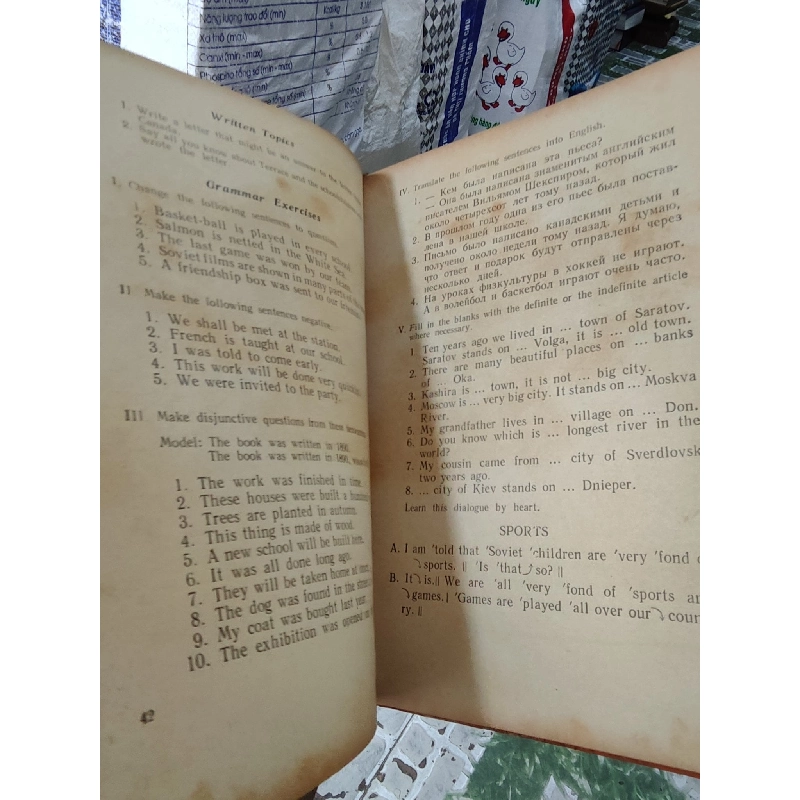 Năng lượng trao đổi (min)
Xơ thô (max)
Canxi (min - max)
Phospho tổng số (min - max)
Written Topics
1. Write a letter that might be an answer to the
Canada.
2. Say all you know about
wrote the letter.
Grammar Exercises
I. Change the following sentences to
1. Basket-ball is played in every
2. Salmon is netted in the White Sea.
3. The last game was won by our team.
4. Soviet films are shown in many parts of
5. A friendship box was sent to our
II Make the following sentences negative.
1. We shall be met at the station.
2. French is taught at our school.
3. I was told to come early.
4. This work will be done very
5. We were invited to the party.
III Make disjunctive questions from these
Model: The book was written in
The book was written in
1. The work was finished in time.
2. These houses were built a
3. Trees are planted in autumn.
4. This thing is made of wood.
5. A new school will be built here.
6. It was all done long ago.
7. They will be taken home at
8. The dog was found in the
9. My coat was bought last year.
10. The exhibition was opened
42
IV. Translate the following sentences into English.
1. — Кем была написана эта пьеса?
— Она была написана знаменитым английским
писателем Вильямом Шекспиром, который жил
около четырехсот лет тому назад.
2. В прошлом году одна из его пьес была постав-
лена в нашей школе.
3. Письмо было написано канадскими детьми и
получено около недели тому назад. Я думаю,
что ответ и подарок будут отправлены через
несколько дней.
4. На уроках физкультуры в хоккей не играют.
А в волейбол и баскетбол играют очень часто.
V Fill in the blanks with the definite or the indefinite article
where necessary.
1 Ten years ago we lived in ... town of Saratov.
Saratov stands on ... Volga, it is ... old town.
2. There are many beautiful places on ... banks
of ... Oka.
3. Kashira is ... town, it is not ... big city.
4. Moscow is ... very big city. It stands on ... Moskva
River.
5. My grandfather lives in ... village on ... Don.
6. Do you know which is ... longest river in the
world?
7. My cousin came from ... city of Sverdlovsk
two years ago.
8. ... city of Kiev stands on ... Dnieper.
Learn this dialogue by heart.
SPORTS
A. I am 'told that 'Soviet 'children are 'very 'fond
⤵sports. || 'Is 'that ⤴so? ||
B. It⤵is.|| We are 'all 'very 'fond of 'sports
⤵games.| 'Games are 'played 'all over our⤵coun
ry. ||